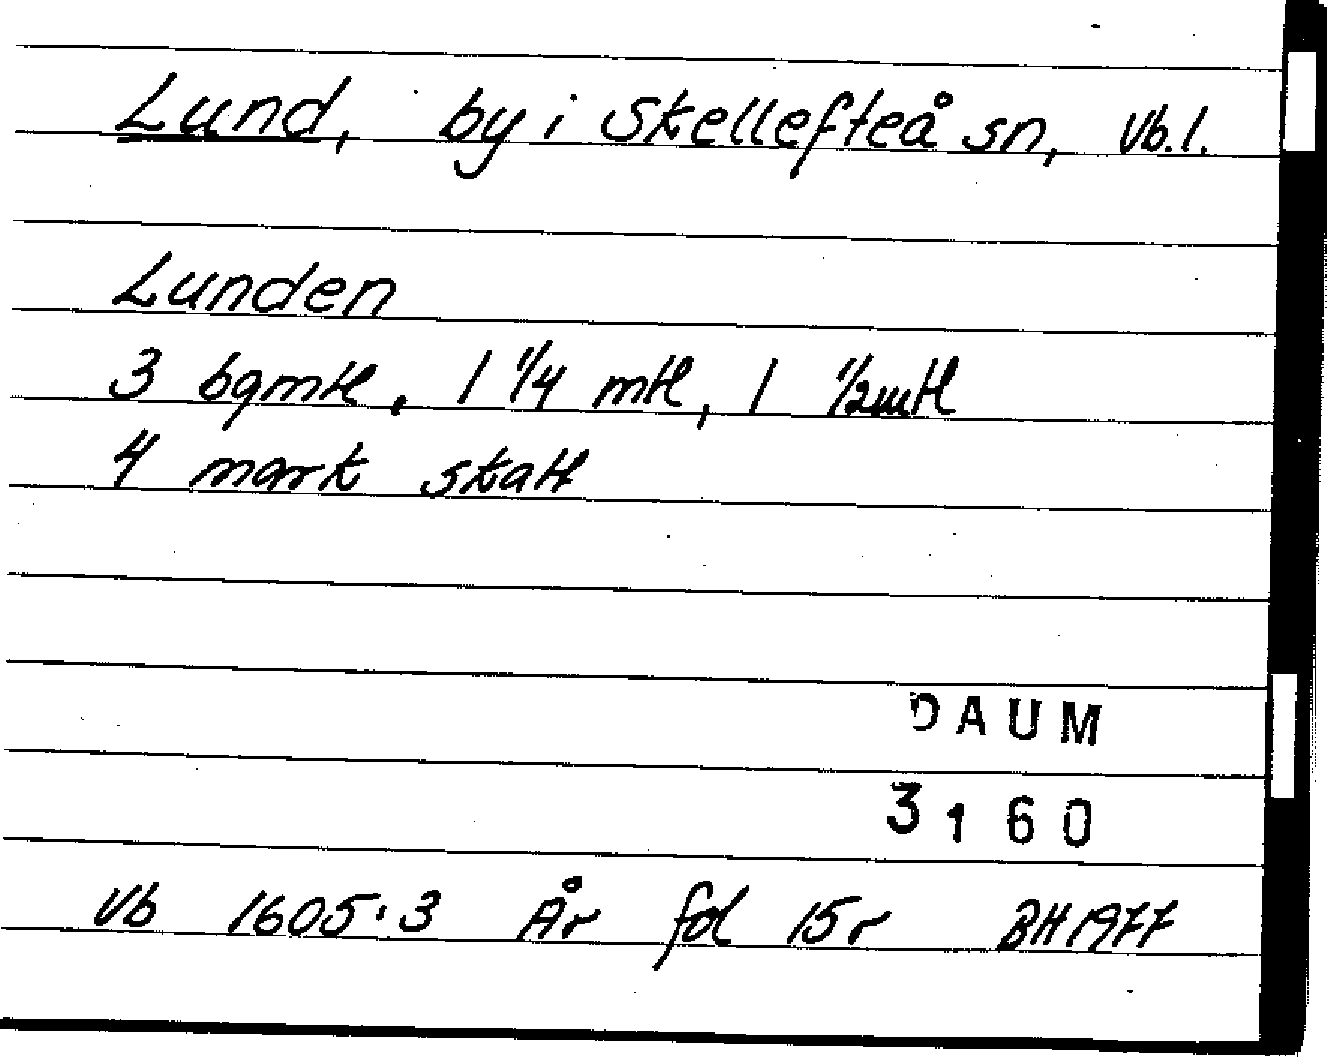 Lund, by i Skellefteå sn, Vb.l.
Lunden
3 bgmtl, 1 1/4 mtl, 1 1/2 mtl
4 mark skatt
DAUM
3160
Vb 1605:3 År fol 15r BH 1977